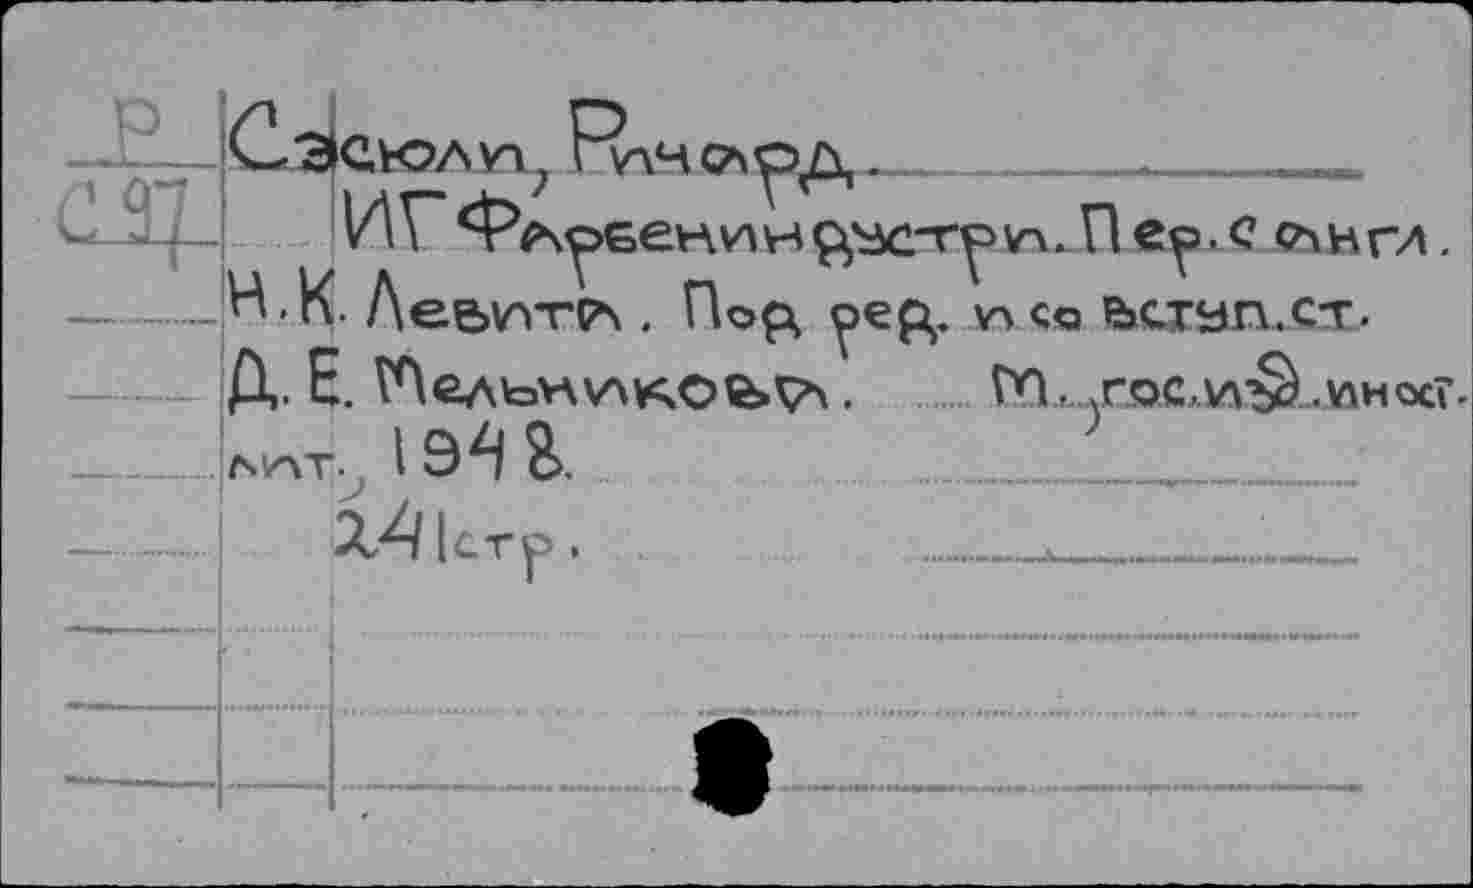 Р
С97
Сэсюли, Ричард.
ИГ Фарбениндустри. Пер. с англ.
Н.К. Левита. Под ред. и со вступ. ст.
Д. Е. Мельникова. М., гос. изд. иност.
лит., 1948.
241 стр.